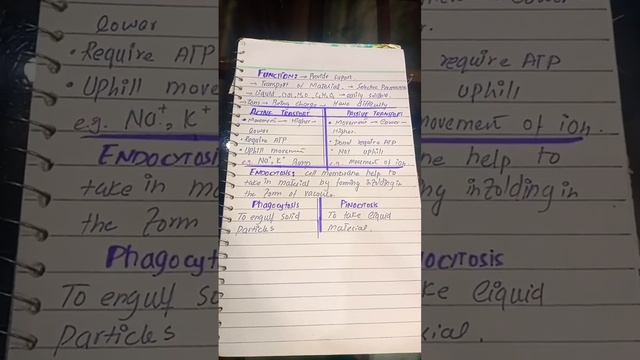 FUNCTION: → Provide suport.
→ Transport of Material. → Selective Permeable
→ Liquid, H2O, C6H12O6 → easily
→ Ions → Being charge → Have difficulty
ACTIVE TRANSPORT
• Movement → Higher →
Lower
• Require ATP
• Uphill movement
e.g. Na+, K+ Pump
PASSIVE TRANSPORT
• Movement → Lower →
Higher.
• Dont require ATP
• Not uphill
e.g. movement of ion.
ENDOCYTOSIS: cell membrane help to
take in material by forming infolding in
the form of vacuole.
PHAGOCYTOSIS
To engulf solid
Particles
PINOCYTOSIS
To take liquid
Material.
Lower
• Require ATP
• Uphill movem
e.g. Na+, K+
ENDOCYTOSIS
take in mate
the form
Phagocytos
To engulf so
Particles
require ATP
uphill
movement of ion.
ne help to
ng infolding in
NOCYTOSIS
ake liquid
rial.